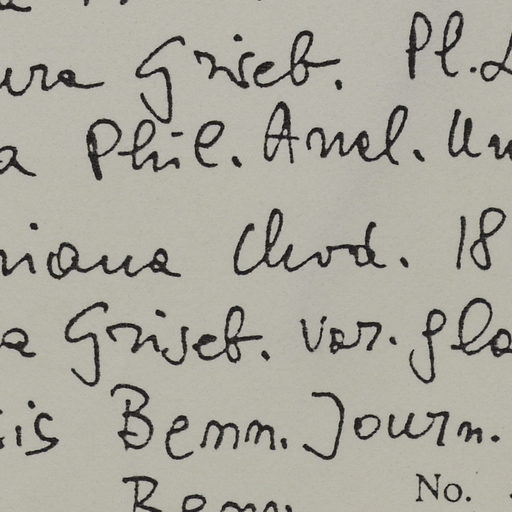 ura Griseb. Pl. L
a Phil. Anal. Un
niana Chod. 18
a Griseb. var. gla
sis Benn. Journ.
Benn.
No.